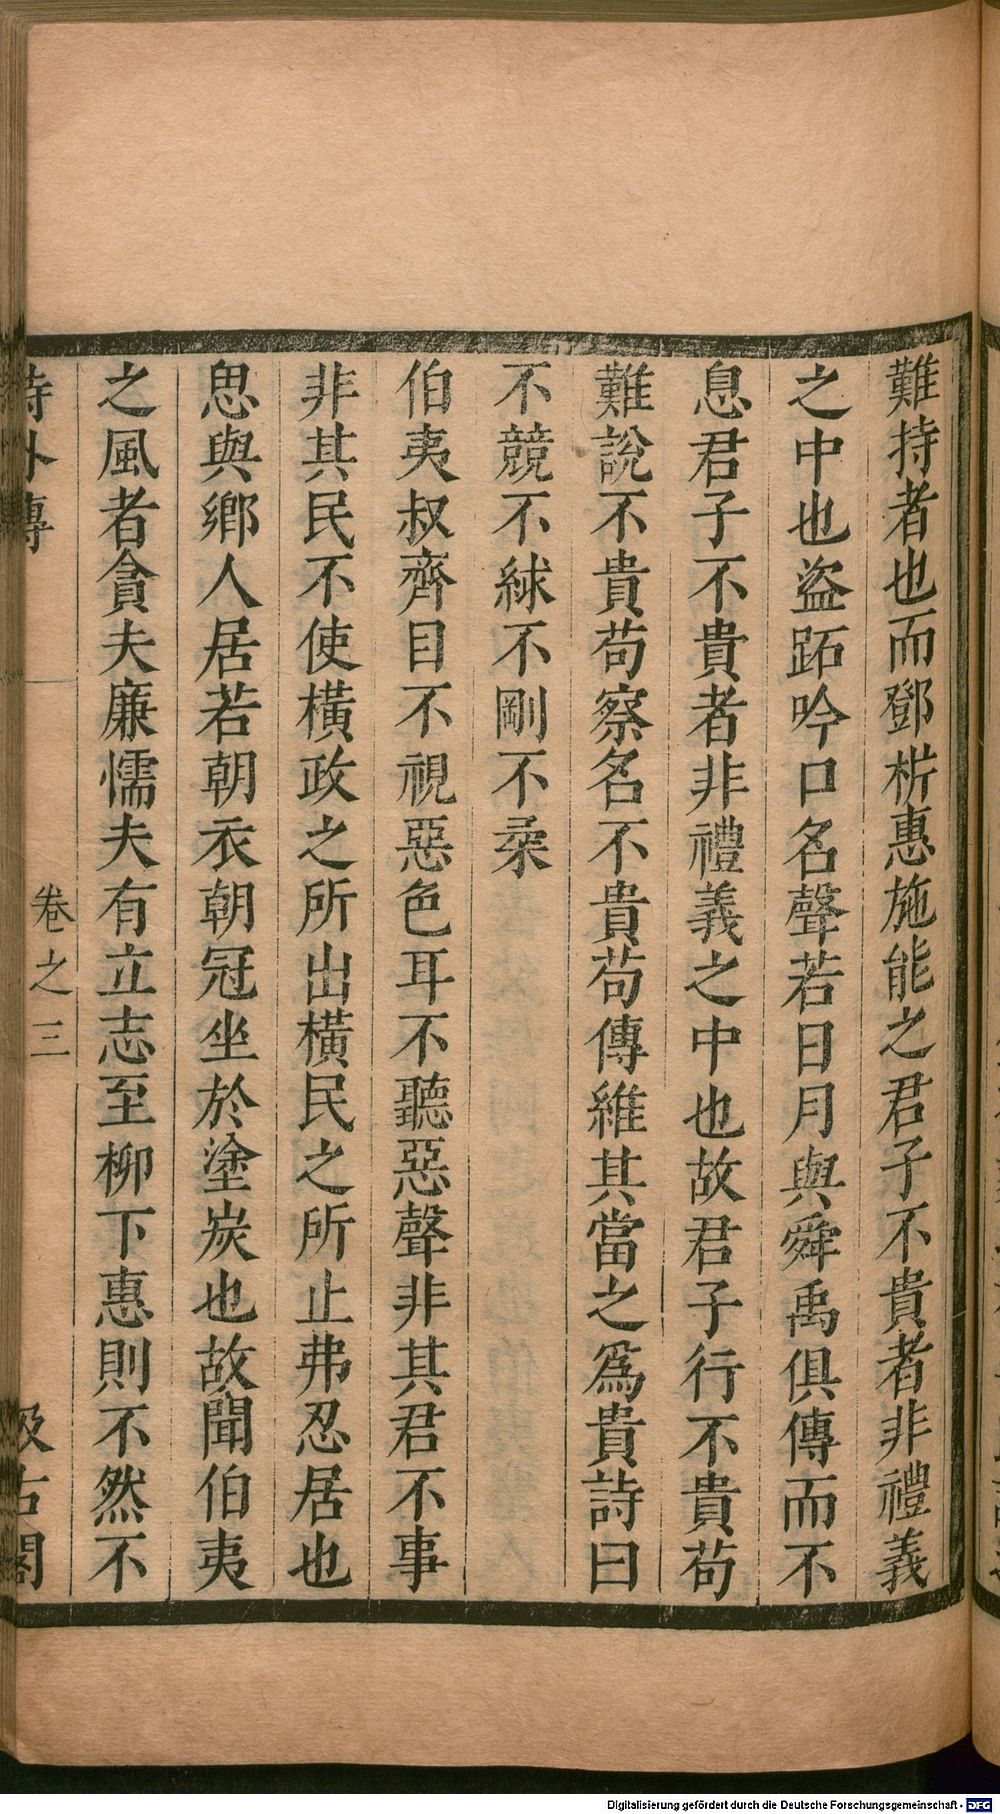 難持者也而鄧析惠施能之君子不貴者非禮義
之中也盜跖吟口名聲若日月與舜禹俱傳而不
息君子不貴者非禮義之中也故君子行不貴苟
難說不貴苟察名不貴苟傳維其當之爲貴詩曰
不競不絿不剛不柔
伯夷叔齊目不視惡色耳不聽惡聲非其君不事
非其民不使橫政之所出橫民之所止弗忍居也
思與鄉人居若朝衣朝冠坐於塗炭也故聞伯夷
之風者貪夫廉懦夫有立志至柳下惠則不然不
詩外傳 卷之三 汲古閣
Digitalisierung gefördert durch die Deutsche Forschungsgemeinschaft - DFG